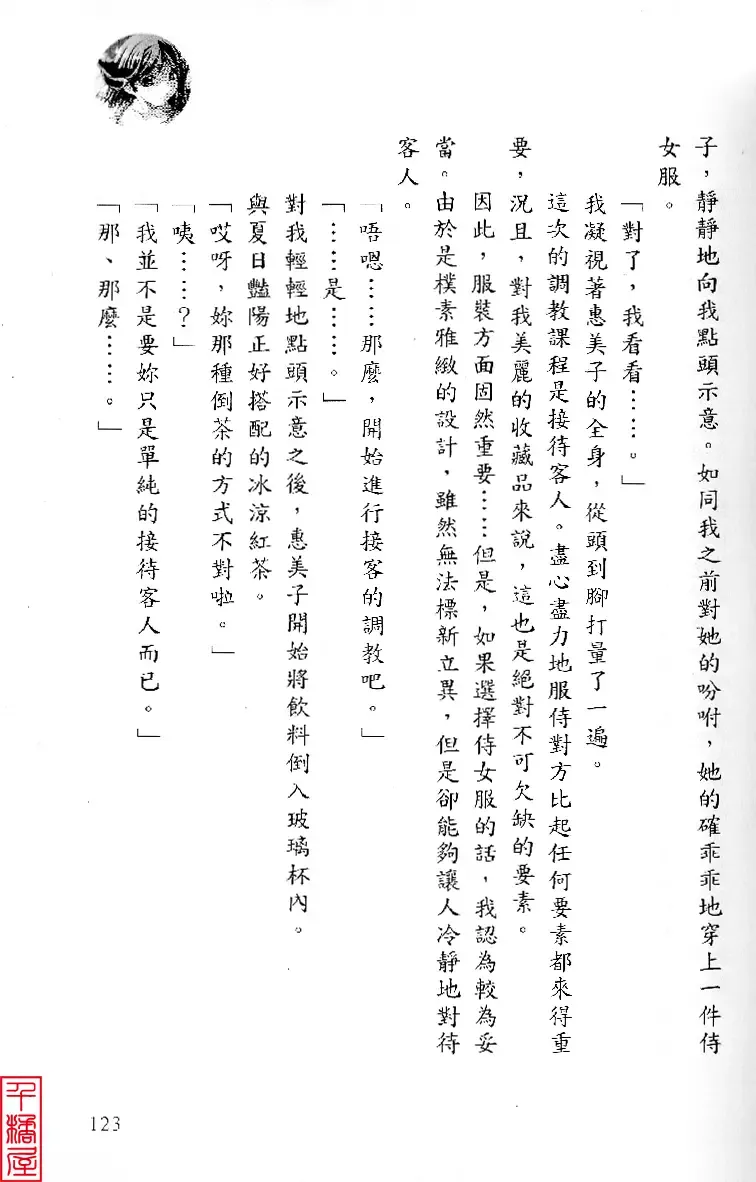 子，靜靜地向我點頭示意。如同我之前對她的吩咐，她的確乖乖地穿上一件侍
女服。
「對了，我看看……。」
我凝視著惠美子的全身，從頭到腳打量了一遍。
這次的調教課程是接待客人。盡心盡力地服侍對方比起任何要素都來得重
要，況且，對我美麗的收藏品來說，這也是絕對不可欠缺的要素。
因此，服裝方面固然重要……但是，如果選擇侍女服的話，我認為較為妥
當。由於是樸素雅緻的設計，雖然無法標新立異，但是卻能夠讓人冷靜地對待
客人。
「唔嗯……那麼，開始進行接客的調教吧。」
「……是……。」
對我輕輕地點頭示意之後，惠美子開始將飲料倒入玻璃杯內。
與夏日豔陽正好搭配的冰涼紅茶。
「哎呀，妳那種倒茶的方式不對啦。」
「咦……？」
「我並不是要妳只是單純的接待客人而已。」
「那、那麼……。」
123
千橘屋